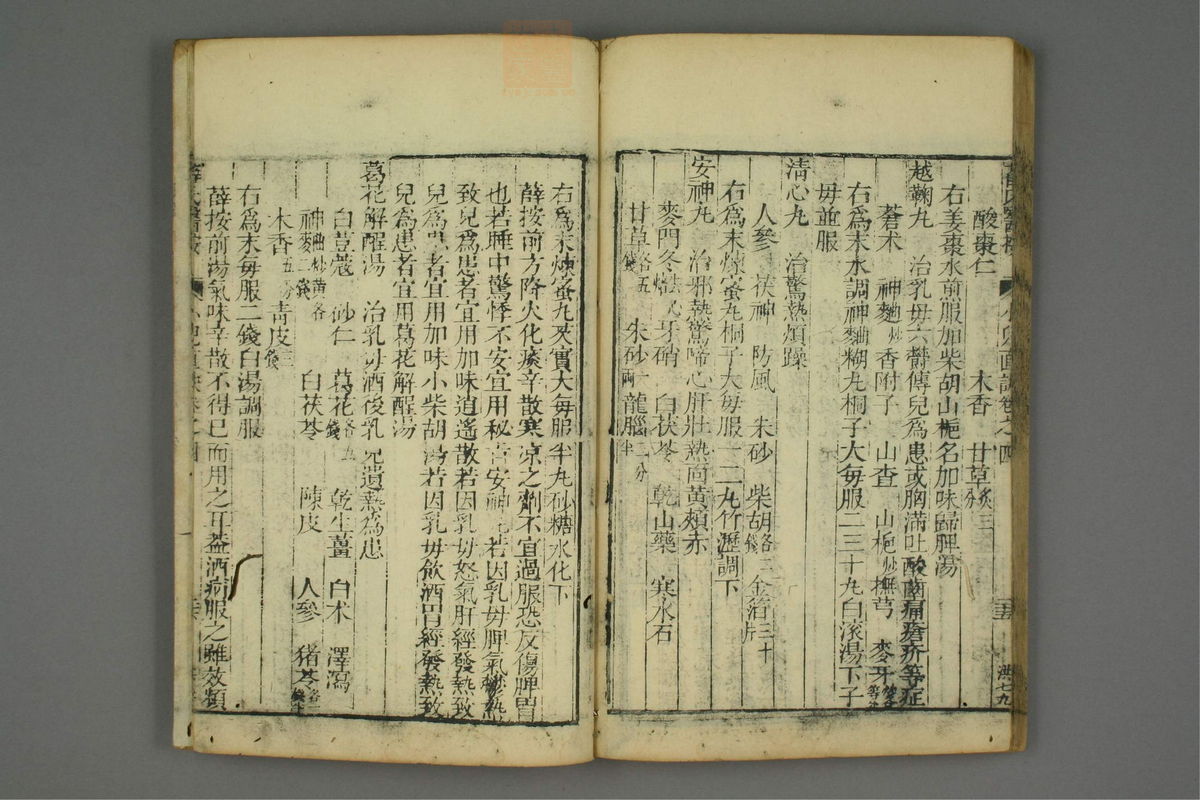 酸棗仁 木香 甘草炙三分
右姜棗水煎服加柴胡山梔名加味歸脾湯
越鞠丸 治乳母六鬱傳兒為患或胸滿吐酸齒痛瘡疥等症
蒼术 神麯炒 香附子 山查 山梔炒 撫芎 麥牙
右為末水調神麯糊丸桐子大每服二三十丸白滾湯下子
母並服
清心丸 治驚熱煩躁
人參 茯神 防風 朱砂 柴胡各二錢 金箔三十片
右為末煉蜜丸桐子大每服一二丸竹瀝調下
安神丸 治邪熱驚啼心肝壯熱面黃頰赤
麥門冬 牙硝 白茯苓 乾山藥 寒水石
甘草各五錢 朱砂一兩 龍腦二分半
右為末煉蜜丸芡實大每服半丸砂糖水化下
薛按前方降火化痰辛散寒凉之劑不宜過服恐反傷脾胃
也若睡中驚悸不安宜用秘旨安神丸若因乳母脾氣鬱熱
致兒為患者宜用加味逍遙散若因乳母怒氣肝經發熱致
兒為患者宜用加味小柴胡湯若因乳母飲酒胃經發熱致
兒為患者宜用葛花解醒湯
葛花解醒湯 治乳母酒後乳兒遺熱為患
白荳蔻 砂仁 葛花各五錢 乾生薑 白术 澤瀉
神麯炒黃各二錢 白茯苓 陳皮 人參 猪苓
木香五分 青皮三錢
右為末每服二錢白湯調服
薛按前湯氣味辛散不得已而用之耳蓋酒病服之雖效頻